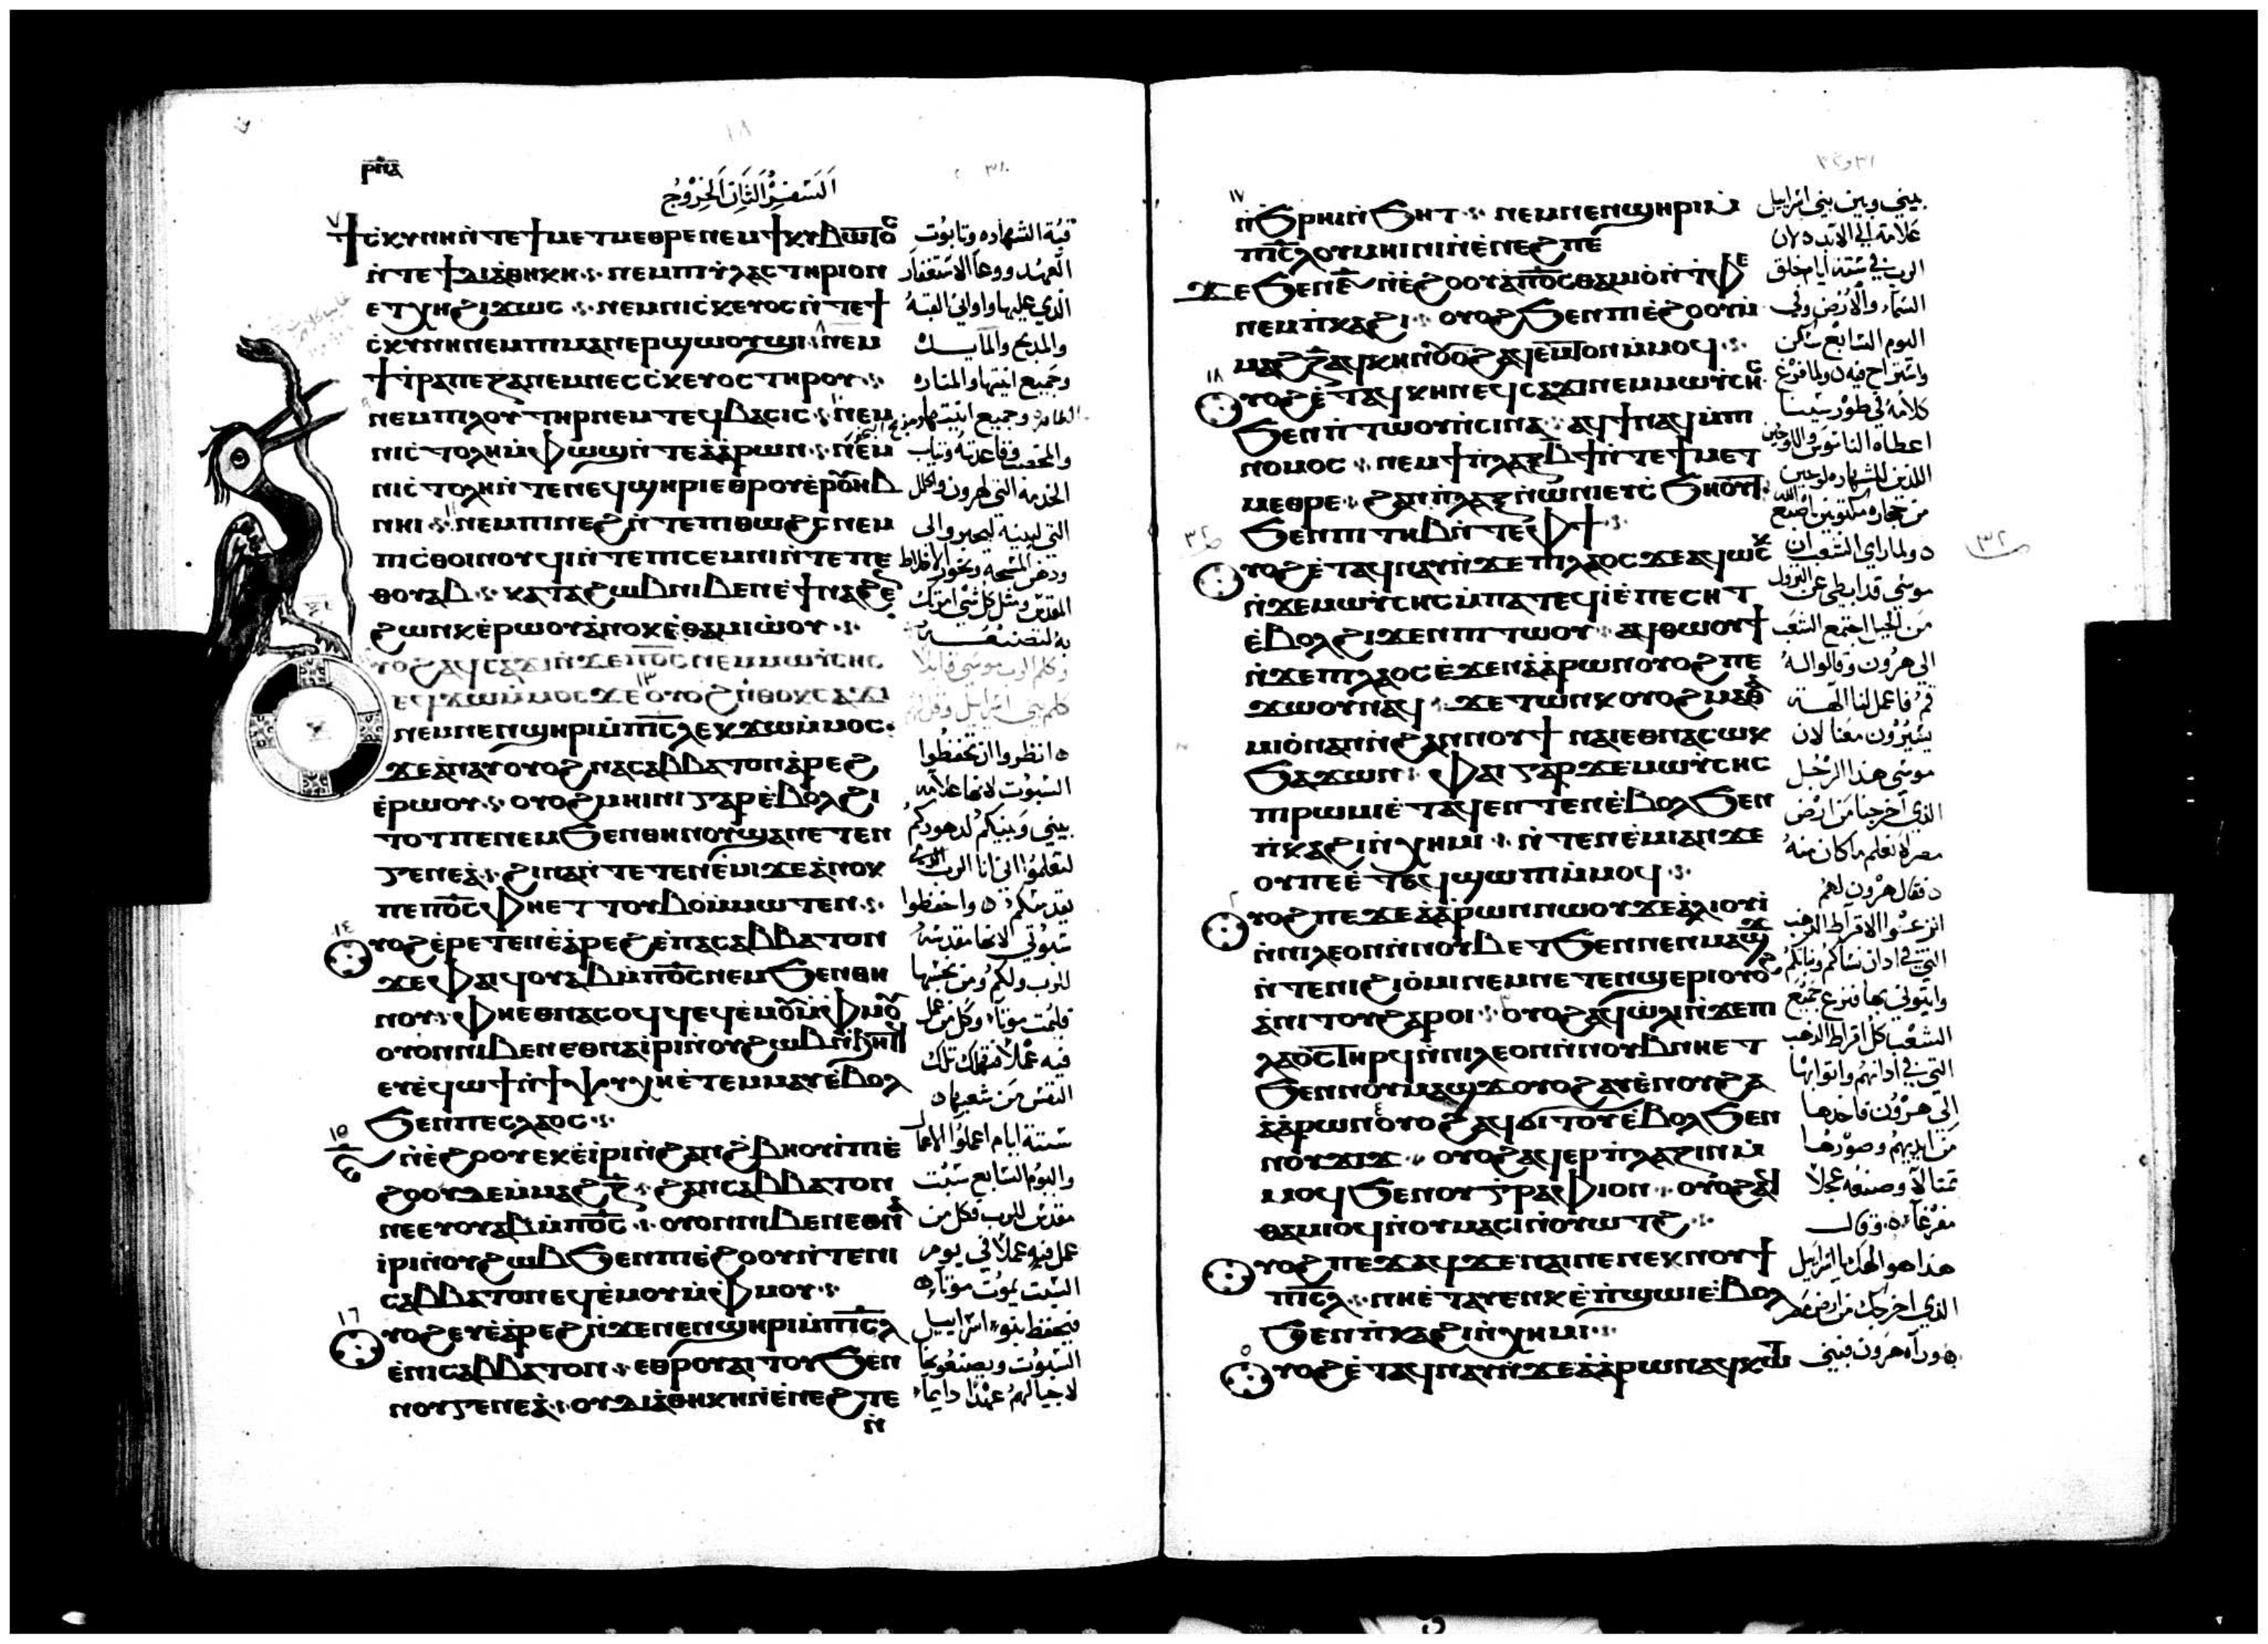 ⲣⲡⲁ
السفر الثاني الخروج
ϯⲥⲕⲩⲛⲏ ⲛ̀ⲧⲉ ϯⲙⲉⲧⲙⲉⲑⲣⲉ ⲛⲉⲙ ϯⲕⲩⲃⲱⲧⲟⲥ
ⲛ̀ⲧⲉ ϯⲇⲓⲁⲑⲏⲕⲏ ⲛⲉⲙ ⲡⲓⲩ̀ⲗⲁⲥⲧⲏⲣⲓⲟⲛ
ⲉⲧⲭⲏ ϩⲓϫⲱⲥ ⲛⲉⲙ ⲛⲓⲥⲕⲉⲩⲟⲥ ⲛ̀ⲧⲉ ϯ
ⲥ̀ⲕⲩⲛⲏ ⲛⲉⲙ ⲡⲓⲙⲁⲛⲉⲣϣⲱⲟⲩϣⲓ ⲛⲉⲙ
ϯⲧ̀ⲣⲁⲡⲉⲍⲁ ⲛⲉⲙ ⲛⲉⲥⲥ̀ⲕⲉⲩⲟⲥ ⲧⲏⲣⲟⲩ
ⲛⲉⲙ ⲡⲓⲗⲟⲩⲧⲏⲣ ⲛⲉⲙ ⲧⲉϥⲃⲁⲥⲓⲥ ⲛⲉⲙ
ⲛⲓⲥ̀ⲧⲟⲗⲏ ⲙ̀ⲫϣⲉⲙϣⲓ ⲛ̀ⲧⲉ ⲁ̀ⲁ̀ⲣⲱⲛ ⲛⲉⲙ
ⲛⲓⲥ̀ⲧⲟⲗⲏ ⲛ̀ⲧⲉ ⲛⲉϥϣⲏⲣⲓ ⲉⲑⲣⲟⲩⲉ̀ⲣⲟⲩⲏⲃ
ⲛⲏⲓ ⲛⲉⲙ ⲡⲓⲛⲉϩ ⲛ̀ⲧⲉ ⲡⲓⲑⲱϩⲥ ⲛⲉⲙ
ⲡⲓⲥ̀ⲑⲟⲓⲛⲟⲩϥⲓ ⲛ̀ⲧⲉ ⲡⲓⲥⲉⲙⲛⲓ ⲛ̀ⲧⲉ ⲡⲉ
ⲑⲟⲩⲁⲃ ⲕⲁⲧⲁ ϩⲱⲃ ⲛⲓⲃⲉⲛ ⲉ̀ϯⲛⲁϩⲉⲛ
ϩⲱⲛⲕ ⲉ̀ⲣⲱⲟⲩ ⲁ̀ⲛⲟⲕ ⲉ̀ⲑⲁⲙⲓⲱ̀ⲟⲩ
ⲩⲟϩ ⲁϥⲥⲁϫⲓ ⲛ̀ϫⲉ ⲡⲟ̅ⲥ̅ ⲛⲉⲙ ⲙⲱⲩ̀ⲥⲏⲥ
ⲉϥϫⲱ ⲙ̀ⲙⲟⲥ ϫⲉ ⲟⲩⲟϩ ⲛ̀ⲑⲟⲕ ⲥⲁϫⲓ
ⲛⲉⲙ ⲛⲉⲛϣⲏⲣⲓ ⲙ̀ⲡⲓⲥ̅ⲗ̅ ⲉⲕϫⲱ ⲙ̀ⲙⲟⲥ
ϫⲉ ⲁ̀ⲛⲁⲩ ⲟⲩⲟϩ ⲛⲁⲥⲁⲃⲃⲁⲧⲟⲛ ⲁ̀ⲣⲉϩ
ⲉ̀ⲣⲱⲟⲩ ⲟⲩⲟϩ ⲙⲏⲓⲛⲓ ⲅⲁⲣ ⲉ̀ⲃⲟⲗ ϩⲓ
ⲧⲟⲧ ⲡⲉ ⲛⲉⲙ ϧⲉⲛ ⲑⲏⲛⲟⲩ ϣⲁ ⲛⲉⲧⲉⲛ
ⲅⲉⲛⲉⲁ̀ ϩⲓⲛⲁ ⲛ̀ⲧⲉⲧⲉⲛⲉ̀ⲙⲓ ϫⲉ ⲁ̀ⲛⲟⲕ
ⲡⲉ ⲡⲟ̅ⲥ̅ ⲫⲏⲉⲧⲧⲟⲩⲃⲟ ⲙ̀ⲙⲱⲧⲉⲛ
ⲩⲟϩ ⲉ̀ⲣⲉⲧⲉⲛⲉ̀ⲁ̀ⲣⲉϩ ⲉ̀ⲛⲁⲥⲁⲃⲃⲁⲧⲟⲛ
ϫⲉ ⲫⲁⲓ ϥⲟⲩⲁⲃ ⲙ̀ⲡⲟ̅ⲥ̅ ⲛⲉⲙ ϧⲉⲛ ⲑⲏ
ⲛⲟⲩ ⲫⲏⲉⲑⲛⲁⲥⲟϥϥ ⲉϥⲉ̀ⲙⲟⲩ ⲙ̀ⲫⲙⲟⲩ
ⲟⲩⲟⲛ ⲛⲓⲃⲉⲛ ⲉⲑⲛⲁⲓ̀ⲣⲓ ⲛ̀ⲟⲩϩⲱⲃ ⲛ̀ϧⲏⲧϥ
ⲉⲩⲉ̀ϥⲱϯ ⲛ̀ϯⲯⲩⲭⲏ ⲉ̀ⲧⲉⲙⲙⲁⲩ ⲉ̀ⲃⲟⲗ
ϧⲉⲛ ⲡⲉⲥⲗⲁⲟⲥ
ⲛ̀ⲉ̀ϩⲟⲟⲩ ⲉⲕⲉ̀ⲓ̀ⲣⲓ ⲛ̀ϩⲁⲛϩ̀ⲃⲏⲟⲩⲓ̀ ⲡⲓⲉ̀
ϩⲟⲟⲩ ⲇⲉ ⲙ̀ⲙⲁϩⲍ̅ ϩⲁⲛⲥⲁⲃⲃⲁⲧⲟⲛ
ⲛⲉ ⲉⲩⲟⲩⲁⲃ ⲙ̀ⲡⲟ̅ⲥ̅ ⲟⲩⲟⲛ ⲛⲓⲃⲉⲛ ⲉⲑⲛⲁ
ⲓ̀ⲣⲓ ⲛ̀ⲟⲩϩⲱⲃ ϧⲉⲛ ⲡⲓⲉ̀ϩⲟⲟⲩ ⲛ̀ⲧⲉ ⲛⲓ
ⲥⲁⲃⲃⲁⲧⲟⲛ ⲉϥⲉ̀ⲙⲟⲩ ⲙ̀ⲫⲙⲟⲩ
ⲩⲟϩ ⲉⲩⲉ̀ⲁ̀ⲣⲉϩ ⲛ̀ϫⲉ ⲛⲉⲛϣⲏⲣⲓ ⲙ̀ⲡⲓⲥ̅ⲗ̅
ⲉ̀ⲛⲓⲥⲁⲃⲃⲁⲧⲟⲛ ⲉⲑⲣⲟⲩⲁⲓⲧⲟⲩ ϧⲉⲛ
ⲛⲟⲩⲅⲉⲛⲉⲁ̀ ⲟⲩⲇⲓⲁⲑⲏⲕⲏ ⲛ̀ⲉ̀ⲛⲉϩ ⲧⲉ
ⲛ̀
قبة الشهاده وتابوت
العهد ووعا الاستغفار
الذي عليها واواني القبة
والمذبح والمايده
وجميع انيتها والمناره
الطاهره وجميع انيتها ومذبح البخور
والمغتسل وقاعدته وثياب
الخدمة التي لهرون والحلل
التي لبنيه ليخدموا لي
ودهن المسحة وبخور الاخلاط
المقدس ومثل كل شي امرتك
به لتصنعه
وكلم الرب موسى قايلا
كلم بني اسرائيل وقل لهم
انظروا ان تحفظوا
السبوت لانها علامه
بيني وبينكم لدهوركم
لتعلموا اني انا الرب الذي
يقدسكم واحفظوا
سبوتي لانها مقدسه
للرب ولكم ومن نجسها
فليمت موتا وكل من عمل
فيه عملا فتهلك تلك
النفس من شعبها
ستة ايام اعملوا الاعمال
واليوم السابع سبت
مقدس للرب فكل من
عمل فيه عملا في يوم
السبت يموت موتا
فيحفظ بنوا اسراييل
السبوت ويصنعونها
لاجيالهم عهدا دايما
ⲛ̀ϧⲣⲏⲓ ⲛ̀ϧⲏⲧ ⲛⲉⲙ ⲛⲉⲛϣⲏⲣⲓ ⲙ̀
ⲡⲓⲥ̅ⲗ̅ ⲟⲩⲙⲏⲓⲛⲓ ⲛ̀ⲉ̀ⲛⲉϩ ⲡⲉ
ϫⲉ ϧⲉⲛ ⲛ̀ⲉ̀ϩⲟⲟⲩ ⲁ̀ⲡⲟ̅ⲥ̅ ⲑⲁⲙⲓⲟ̀ ⲛ̀ⲧ̀ⲫⲉ
ⲛⲉⲙ ⲡ̀ⲕⲁϩⲓ ⲟⲩⲟϩ ϧⲉⲛ ⲡⲓⲉ̀ϩⲟⲟⲩ ⲙ̀
ⲙⲁϩⲍ̅ ⲁϥⲕⲏⲛ ⲟⲩⲟϩ ⲁϥⲉⲙⲧⲟⲛ ⲙ̀ⲙⲟϥ
ⲩⲟϩ ⲉ̀ⲧⲁϥⲕⲏⲛ ⲉϥⲥⲁϫⲓ ⲛⲉⲙ ⲙⲱⲩ̀ⲥⲏⲥ
ϧⲉⲛ ⲡ̀ⲧⲱⲟⲩ ⲛ̀ⲥⲓⲛⲁ ⲁϥϯ ⲛⲁϥ ⲙ̀ⲡⲓ
ⲛⲟⲙⲟⲥ ⲛⲉⲙ ϯⲡ̀ⲗⲁⲝ ⲃ̅ϯ ⲛ̀ⲧⲉ ϯⲙⲉⲧ
ⲙⲉⲑⲣⲉ ϩⲁⲛⲡ̀ⲗⲁⲝ ⲛ̀ⲱ̀ⲛⲓ ⲉⲩⲥ̀ϧⲏⲟⲩⲧ
ϧⲉⲛ ⲡⲓⲧⲏⲃ ⲛ̀ⲧⲉ ⲫϯ
ⲩⲟϩ ⲉ̀ⲧⲁϥⲛⲁⲩ ⲛ̀ϫⲉ ⲡⲓⲗⲁⲟⲥ ϫⲉ ⲁϥⲱⲥⲕ
ⲛ̀ϫⲉ ⲙⲱⲩ̀ⲥⲏⲥ ⲙ̀ⲡⲁⲧⲉϥⲓ̀ ⲉ̀ⲡⲉⲥⲏⲧ
ⲉ̀ⲃⲟⲗ ϩⲓϫⲉⲛ ⲡⲓⲧⲱⲟⲩ ⲁϥⲑⲱⲟⲩϯ
ⲛ̀ϫⲉ ⲡⲓⲗⲁⲟⲥ ⲉ̀ϫⲉⲛ ⲁ̀ⲁ̀ⲣⲱⲛ ⲟⲩⲟϩ ⲡⲉ
ϫⲱⲟⲩ ⲛⲁϥ ϫⲉ ⲧⲱⲛⲕ ⲟⲩⲟϩ ⲙⲁⲑⲁ
ⲙⲓⲟ̀ ⲛⲁⲛ ⲛ̀ϩⲁⲛⲛⲟⲩϯ ⲛⲁⲓ ⲉⲑⲛⲁⲥⲱⲕ
ϧⲁϫⲱⲛ ⲫⲁⲓ ⲅⲁⲣ ϫⲉ ⲙⲱⲩ̀ⲥⲏⲥ
ⲡⲓⲣⲱⲙⲓ ⲉ̀ⲧⲁϥⲉⲛⲧⲉⲛ ⲉ̀ⲃⲟⲗ ϧⲉⲛ
ⲡ̀ⲕⲁϩⲓ ⲛ̀ⲭⲏⲙⲓ ⲛ̀ⲧⲉⲛⲉ̀ⲙⲓ ⲁⲛ ϫⲉ
ⲟⲩ ⲡⲉ ⲉ̀ⲧⲁϥϣⲱⲡⲓ ⲙ̀ⲙⲟϥ
ⲩⲟϩ ⲡⲉϫⲉ ⲁ̀ⲁ̀ⲣⲱⲛ ⲛⲱⲟⲩ ϫⲉ ⲁ̀ⲗⲓⲟⲩⲓ̀
ⲛ̀ⲛⲓⲗⲉⲟⲛ ⲛ̀ⲛⲟⲩⲃ ⲉⲧϧⲉⲛ ⲛⲉⲛⲙⲁϣϫ
ⲛ̀ⲧⲉ ⲛⲓϩⲓⲟ̀ⲙⲓ ⲛⲉⲙ ⲛⲉⲧⲉⲛϣⲉⲣⲓ ⲟⲩⲟϩ
ⲁ̀ⲛⲓⲧⲟⲩ ϩⲁⲣⲟⲓ ⲟⲩⲟϩ ⲁϥⲱ̀ⲗⲓ ⲛ̀ϫⲉ ⲡⲓ
ⲗⲁⲟⲥ ⲧⲏⲣϥ ⲛ̀ⲛⲓⲗⲉⲟⲛ ⲛ̀ⲛⲟⲩⲃ ⲛⲏⲉⲧ
ϧⲉⲛ ⲛⲟⲩⲙⲁϣϫ ⲟⲩⲟϩ ⲁⲩⲉ̀ⲛⲟⲩ ϩⲁ
ⲁ̀ⲁ̀ⲣⲱⲛ ⲟⲩⲟϩ ⲁϥϭⲓⲧⲟⲩ ⲉ̀ⲃⲟⲗ ϧⲉⲛ
ⲛⲟⲩϫⲓϫ ⲟⲩⲟϩ ⲁϥⲉⲣⲡ̀ⲗⲁⲍⲓⲛ ⲙ̀
ⲙⲟϥ ϧⲉⲛ ⲟⲩⲅⲣⲁⲫⲓⲟⲛ ⲟⲩⲟϩ ⲁϥ
ⲑⲁⲙⲓⲟϥ ⲛ̀ⲟⲩⲙⲁⲥⲓ ⲛ̀ⲟⲩⲱⲧϩ
ⲩⲟϩ ⲡⲉϫⲁϥ ϫⲉ ⲛⲁⲓ ⲛⲉ ⲛⲉⲕⲛⲟⲩϯ
ⲡⲓⲥ̅ⲗ̅ ⲛⲏⲉ̀ⲧⲁⲩⲉⲛⲕ ⲉ̀ⲡ̀ϣⲱⲓ ⲉ̀ⲃⲟⲗ
ϧⲉⲛ ⲡ̀ⲕⲁϩⲓ ⲛ̀ⲭⲏⲙⲓ
ⲩⲟϩ ⲉ̀ⲧⲁϥⲛⲁⲩ ⲛ̀ϫⲉ ⲁ̀ⲁ̀ⲣⲱⲛ ⲁϥⲕⲱⲧ
بيني وبين بني اسراييل
علامة الي الابد لان
الرب في ستة ايام خلق
السماء والارض وفي
اليوم السابع سكن
واستراح فيه ولما فرغ
كلامه في طور سينا
اعطاه الناموس واللوحين
اللذين للشهاده لوحين
من حجاره مكتوبين باصبع الله
ولما راي الشعب ان
موسى قد ابطى عن النزول
من الجبل اجتمع الشعب
الي هرون وقالوا له
قم فاعمل لنا الهة
يسيرون معنا لان
موسى هذا الرجل
الذي اخرجنا من ارض
مصر لا نعلم ما كان منه
فقال هرون لهم
انزعوا الاقراط الذهب
التي في اذان نساكم وبناتكم
وايتوني بها فنزع جميع
الشعب كل اقراط الذهب
التي في اذانهم واتوا بها
الي هرون فاخذها
من ايديهم وصورها
تمثالا وصنعه عجلا
مفرغا وقال
هذا هو الهك يا اسراييل
الذي اخرجك من ارض مصر
وراه هرون فبني